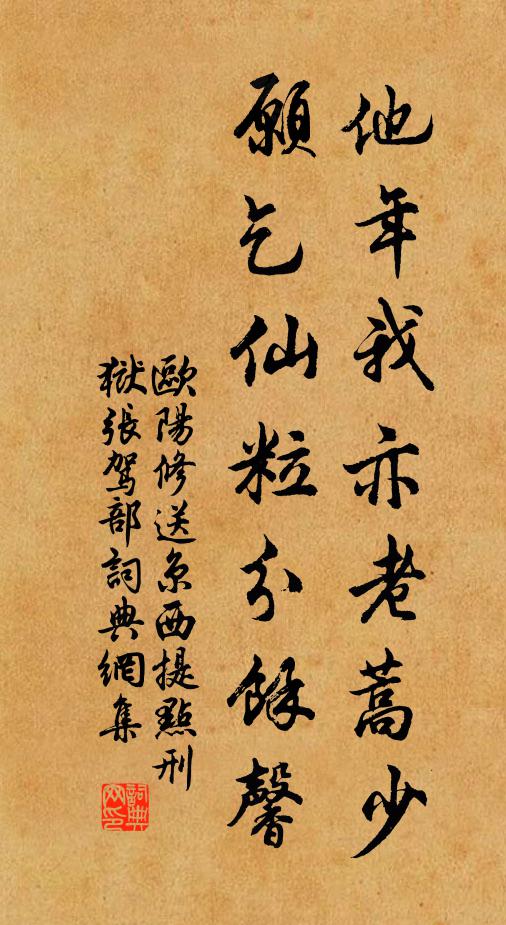 他年我亦老蒿少
願乞仙粒分餘馨
歐陽修送京西提點刑
獄張駕部詞典網集
詞典網印